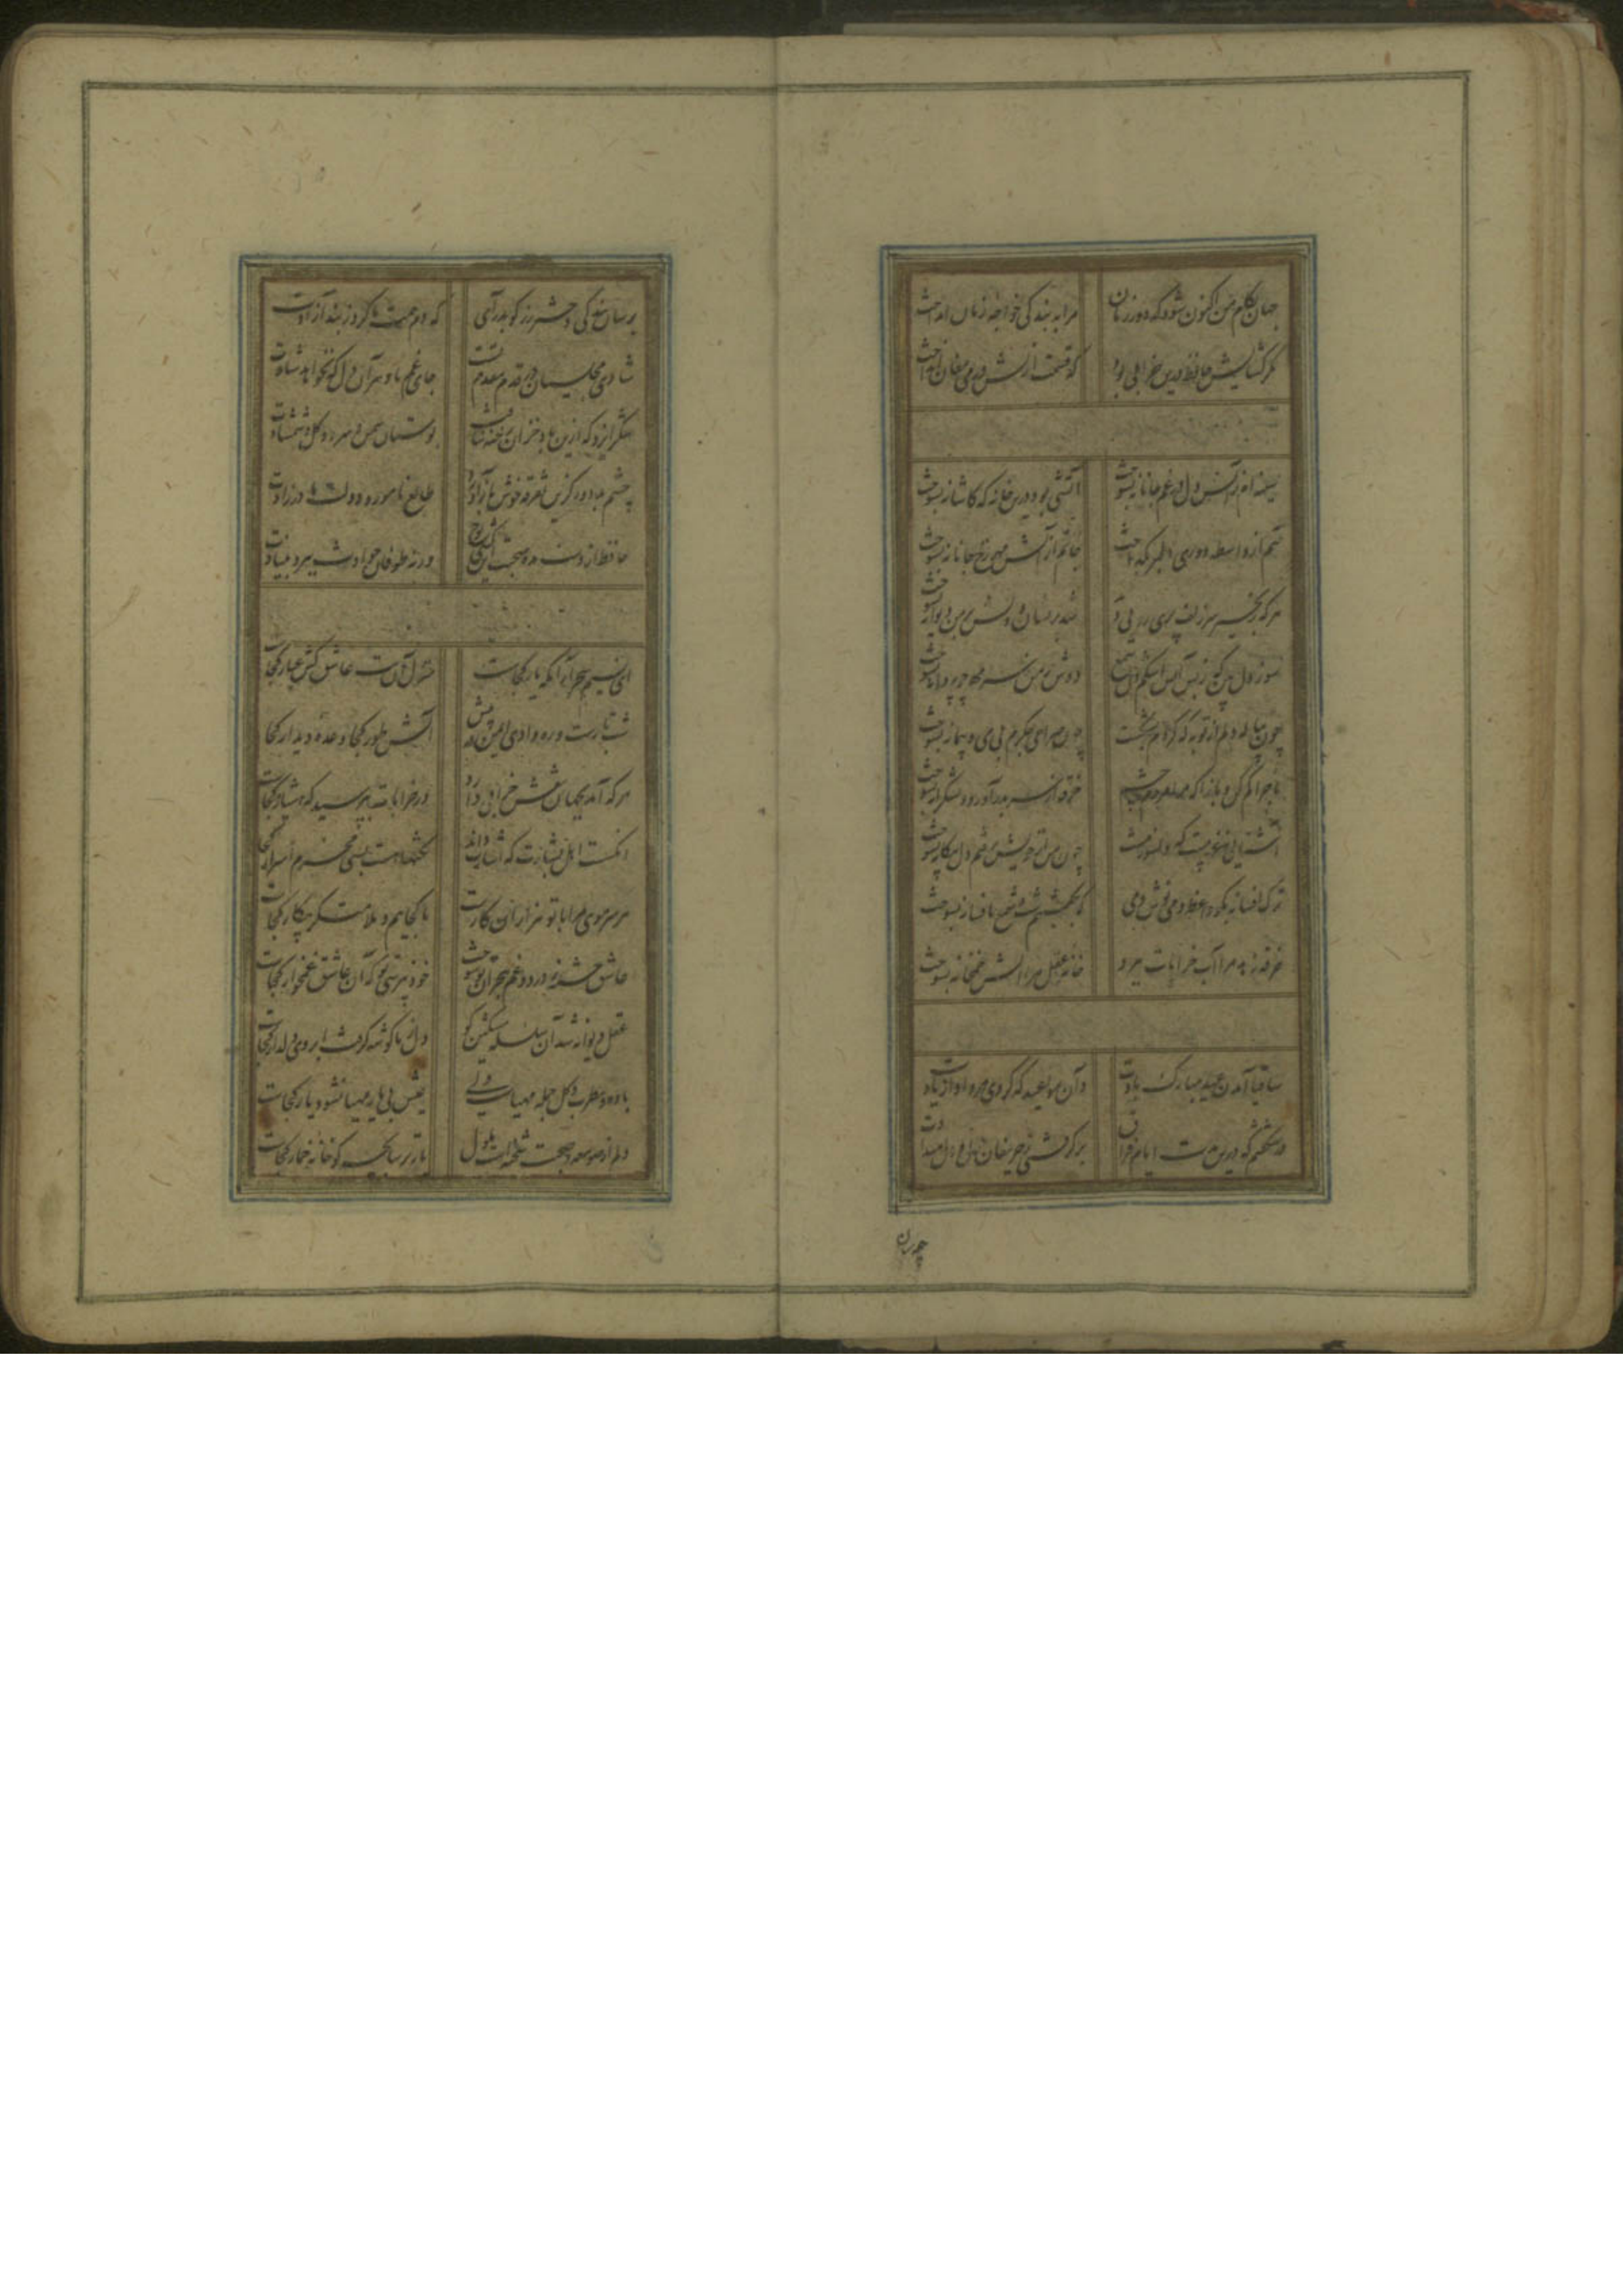 جهان بکام من اکنون شود که دور زمان مرا به بندگی خواجه زمان انداخت
مگر گشایش حافظ درین خرابی بود که قسمت ازلش در می مغان انداخت
سینه ام ز آتش دل در غم جانانه بسوخت آتشی بود درین خانه که کاشانه بسوخت
تنم از واسطه دوری دلبر بگداخت جانم از آتش مهر رخ جانانه بسوخت
هر که زنجیر سر زلف پری روی دید شد پریشان و دلش بر من دیوانه بسوخت
سوز دل بین که ز بس آتش اشکم دل شمع دوش بر من ز سر مهر چو پروانه بسوخت
چون پیاله دلم از توبه که کردم بشکست چون صراحی جگرم بی می و پیمانه بسوخت
ماجرا کم کن و بازآ که مرا مردم چشم خرقه از سر بدر آورد و بشکرانه بسوخت
آشنایی نه غریبست که دلسوز منست چون من از خویش برفتم دل بیگانه بسوخت
ترک افسانه بگو حافظ و می نوش دمی که نخفتیم شب و شمع بافسانه بسوخت
خرقه زهد مرا آب خرابات ببرد خانه عقل مرا آتش خمخانه بسوخت
ساقیا آمدن عید مبارک بادت وان مواعید که کردی مرواد از یادت
در شگفتم که درین مدت ایام فراق برگرفتی ز حریفان دل و دل میدادت
برسان بندگی دختر رز گو بدر آی که دم همت ما کرد ز بند آزادت
شادی مجلسیان در قدم و مقدم تست جای غم باد هر آن دل که نخواهد شادت
شکر ایزد که ازین باد خزان رخنه نیافت بوستان سمن و سرو و گل و شمشادت
چشم بد دور کزین تفرقه خوش باز آورد طالع نامور و دولت مادرزادت
حافظ از دست مده صحبت این کشتی نوح ورنه طوفان حوادث ببرد بنیادت
ای نسیم سحر آرامگه یار کجاست منزل آن مه عاشق کش عیار کجاست
شب تارست و ره وادی ایمن در پیش آتش طور کجا وعده دیدار کجاست
هر که آمد بجهان نقش خرابی دارد در خرابات بپرسید که هشیار کجاست
آنکست اهل بشارت که اشارت داند نکتها هست بسی محرم اسرار کجاست
هر سر موی مرا با تو هزاران کارست ما کجاییم و ملامتگر بیکار کجاست
عاشق خسته ز درد و غم هجران تو سوخت خود نپرسی تو که آن عاشق غمخوار کجاست
عقل دیوانه شد آن سلسله مشکین کو دل ز ما گوشه گرفت ابروی دلدار کجاست
باده و مطرب و گل جمله مهیاست ولی عیش بی یار مهیا نشود یار کجاست
دلم از صومعه و صحبت شیخست ملول یار ترسابچه کو خانه خمار کجاست